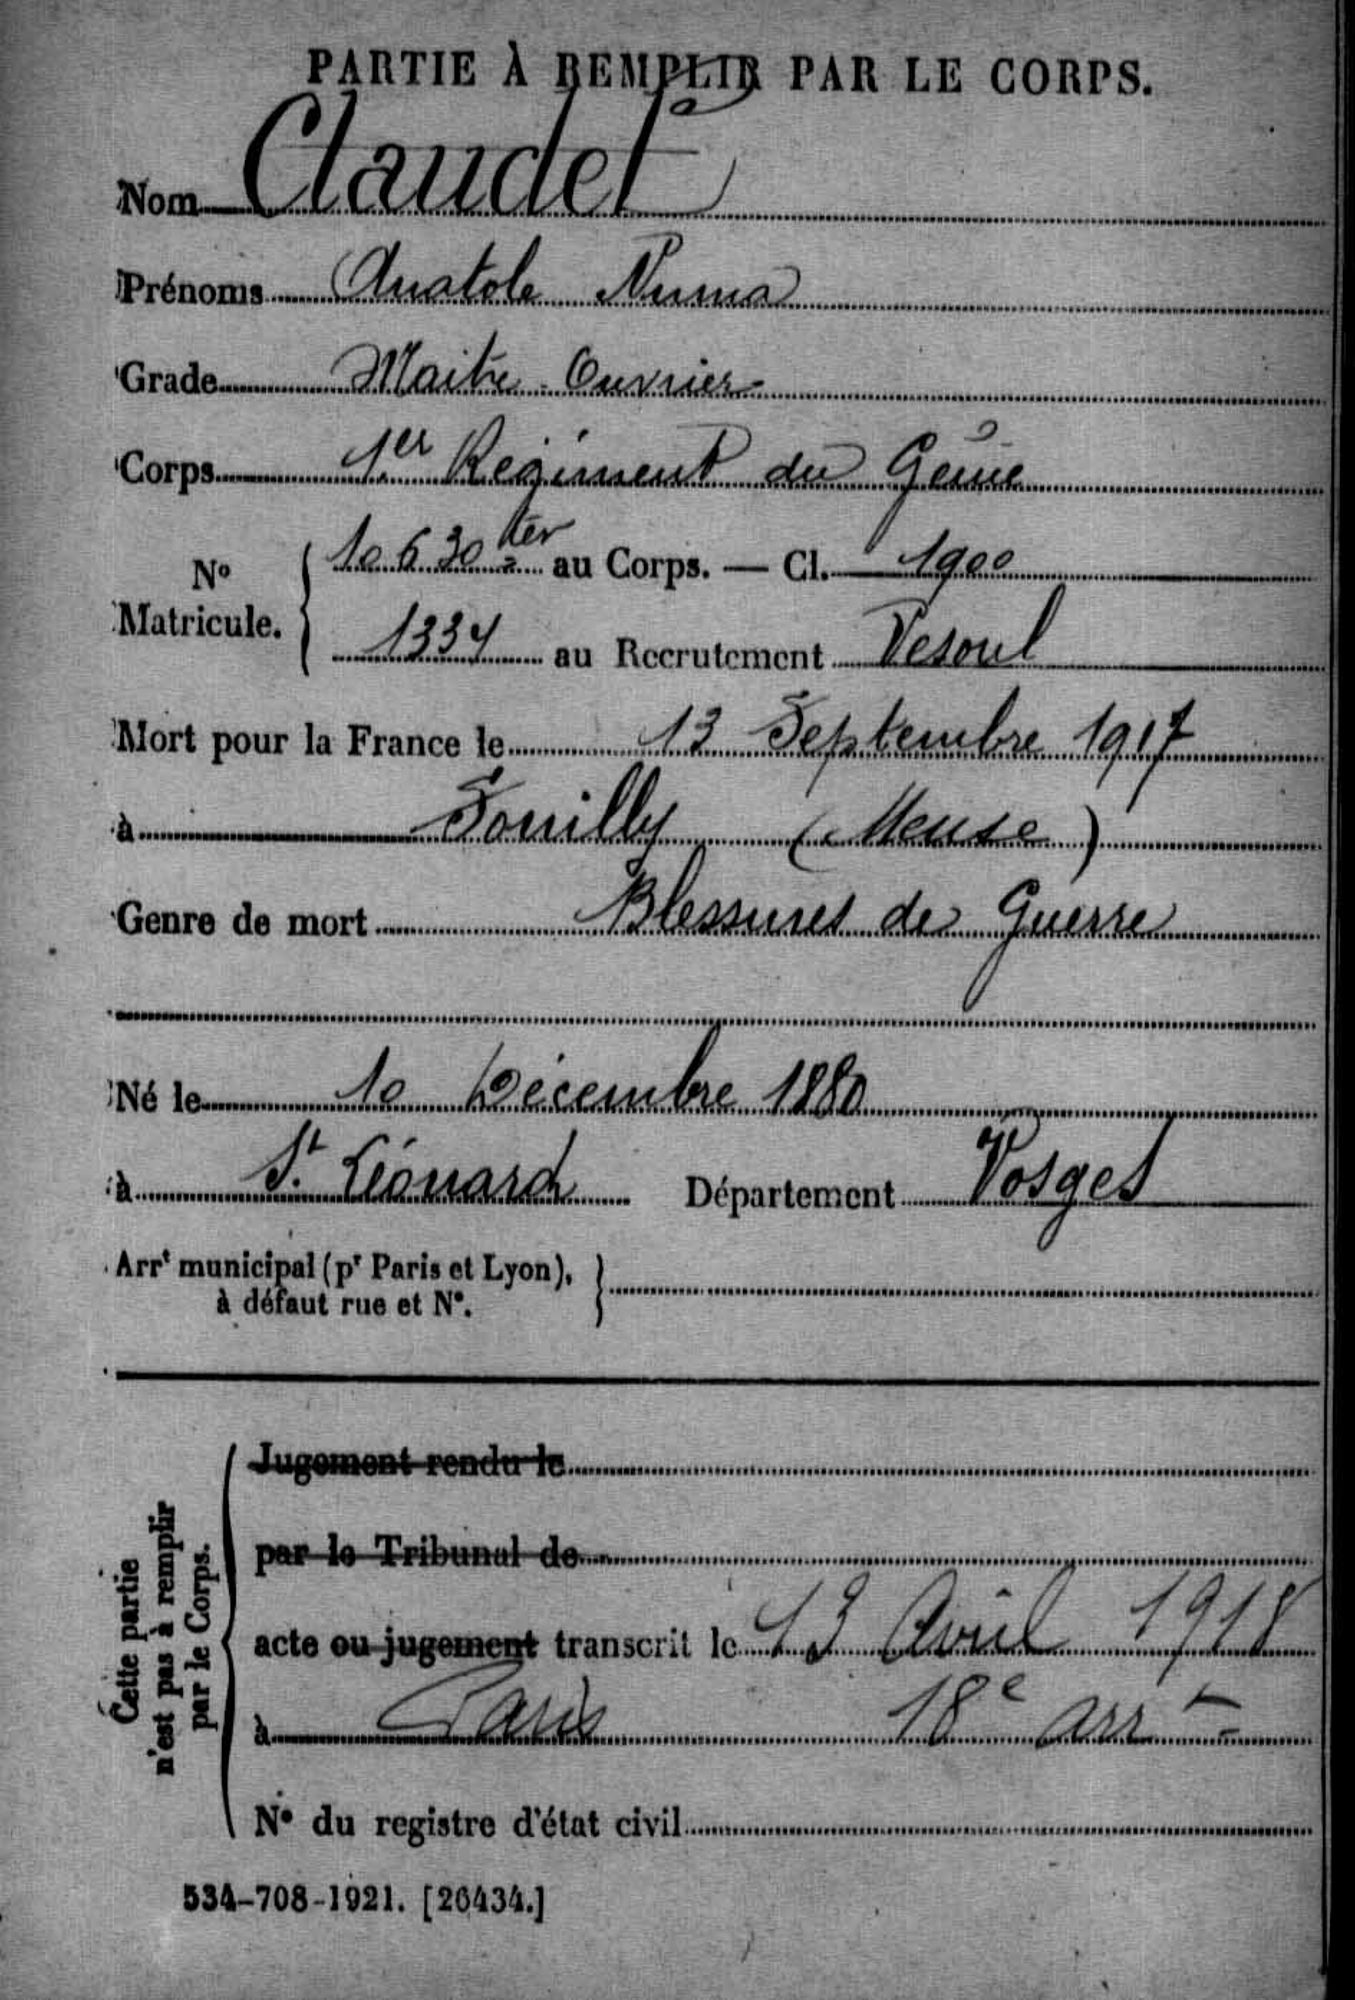 PARTIE À REMPLIR PAR LE CORPS.
Nom Claudel
Prénoms Anatole Numa
Grade Maitre Ouvrier
Corps 1er Régiment du Génie
No Matricule. 10630 ter au Corps. — Cl. 1900
1334 au Recrutement Vesoul
Mort pour la France le 13 Septembre 1917
à Souilly (Meuse)
Genre de mort Blessures de Guerre
Né le 10 Décembre 1880
à St. Léonard Département Vosges
Arrt municipal (pr Paris et Lyon),
à défaut rue et N°.
Cette partie
n'est pas à remplir
par le Corps.
Jugement rendu le
par le Tribunal de
acte ou jugement transcrit le 13 Avril 1918
à Paris 18e arrt
N° du registre d'état civil
534-708-1921. [26434.]